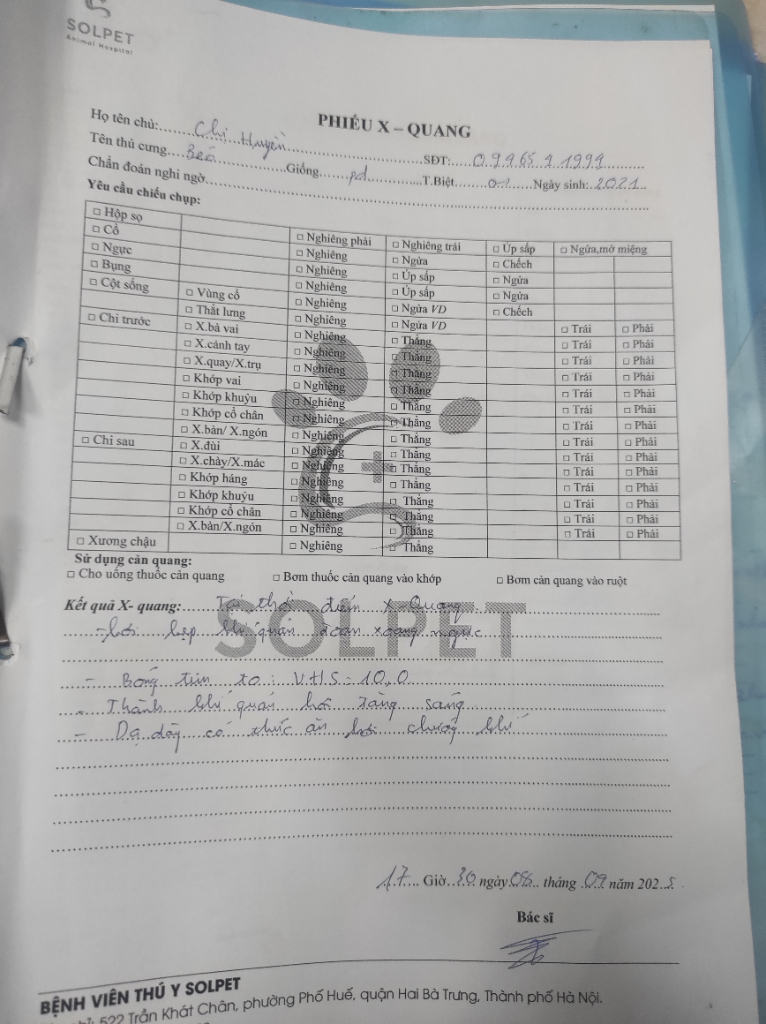 SOLPET
Animal Hospital
PHIẾU X – QUANG
Họ tên chủ: Chị Huyền SĐT:
Tên thú cưng Giống pd T.Biệt Ngày sinh: 2021
Chẩn đoán nghi ngờ
Yêu cầu chiếu chụp:
□ Hộp sọ □ Nghiêng phải □ Nghiêng trái □ Úp sấp □ Ngửa,mở miệng
□ Cổ □ Nghiêng □ Ngửa □ Chếch
□ Ngực □ Nghiêng □ Úp sấp □ Ngửa
□ Bụng □ Nghiêng □ Úp sấp □ Ngửa
□ Cột sống □ Vùng cổ □ Nghiêng □ Ngửa VD □ Chếch
□ Thắt lưng □ Nghiêng □ Ngửa VD
□ Chi trước □ X.bả vai □ Nghiêng □ Thẳng □ Trái □ Phải
□ X.cánh tay □ Nghiêng □ Thẳng □ Trái □ Phải
□ X.quay/X.trụ □ Nghiêng □ Thẳng □ Trái □ Phải
□ Khớp vai □ Nghiêng □ Thẳng □ Trái □ Phải
□ Khớp khuỷu □ Nghiêng □ Thẳng □ Trái □ Phải
□ Khớp cổ chân □ Nghiêng □ Thẳng □ Trái □ Phải
□ X.bàn/ X.ngón □ Nghiêng □ Thẳng □ Trái □ Phải
□ Chi sau □ X.đùi □ Nghiêng □ Thẳng □ Trái □ Phải
□ X.chày/X.mác □ Nghiêng □ Thẳng □ Trái □ Phải
□ Khớp háng □ Nghiêng □ Thẳng □ Trái □ Phải
□ Khớp khuỷu □ Nghiêng □ Thẳng □ Trái □ Phải
□ Khớp cổ chân □ Nghiêng □ Thẳng □ Trái □ Phải
□ X.bàn/X.ngón □ Nghiêng □ Thẳng □ Trái □ Phải
□ Xương chậu □ Nghiêng □ Thẳng
Sử dụng cản quang:
□ Cho uống thuốc cản quang □ Bơm thuốc cản quang vào khớp □ Bơm cản quang vào ruột
Kết quả X- quang: Tại thời điểm X-Quang
- hơi hẹp khí quản đoạn xoang ngực
SOLPET
- Bóng tim to: VHS = 10,0
- Thành khí quản hơi tăng sáng
- Dạ dày có thức ăn hơi chướng khí
17 Giờ 30 ngày 08 tháng 09 năm 2025
Bác sĩ
BỆNH VIỆN THÚ Y SOLPET
chỉ: 522 Trần Khát Chân, phường Phố Huế, quận Hai Bà Trưng, Thành phố Hà Nội.